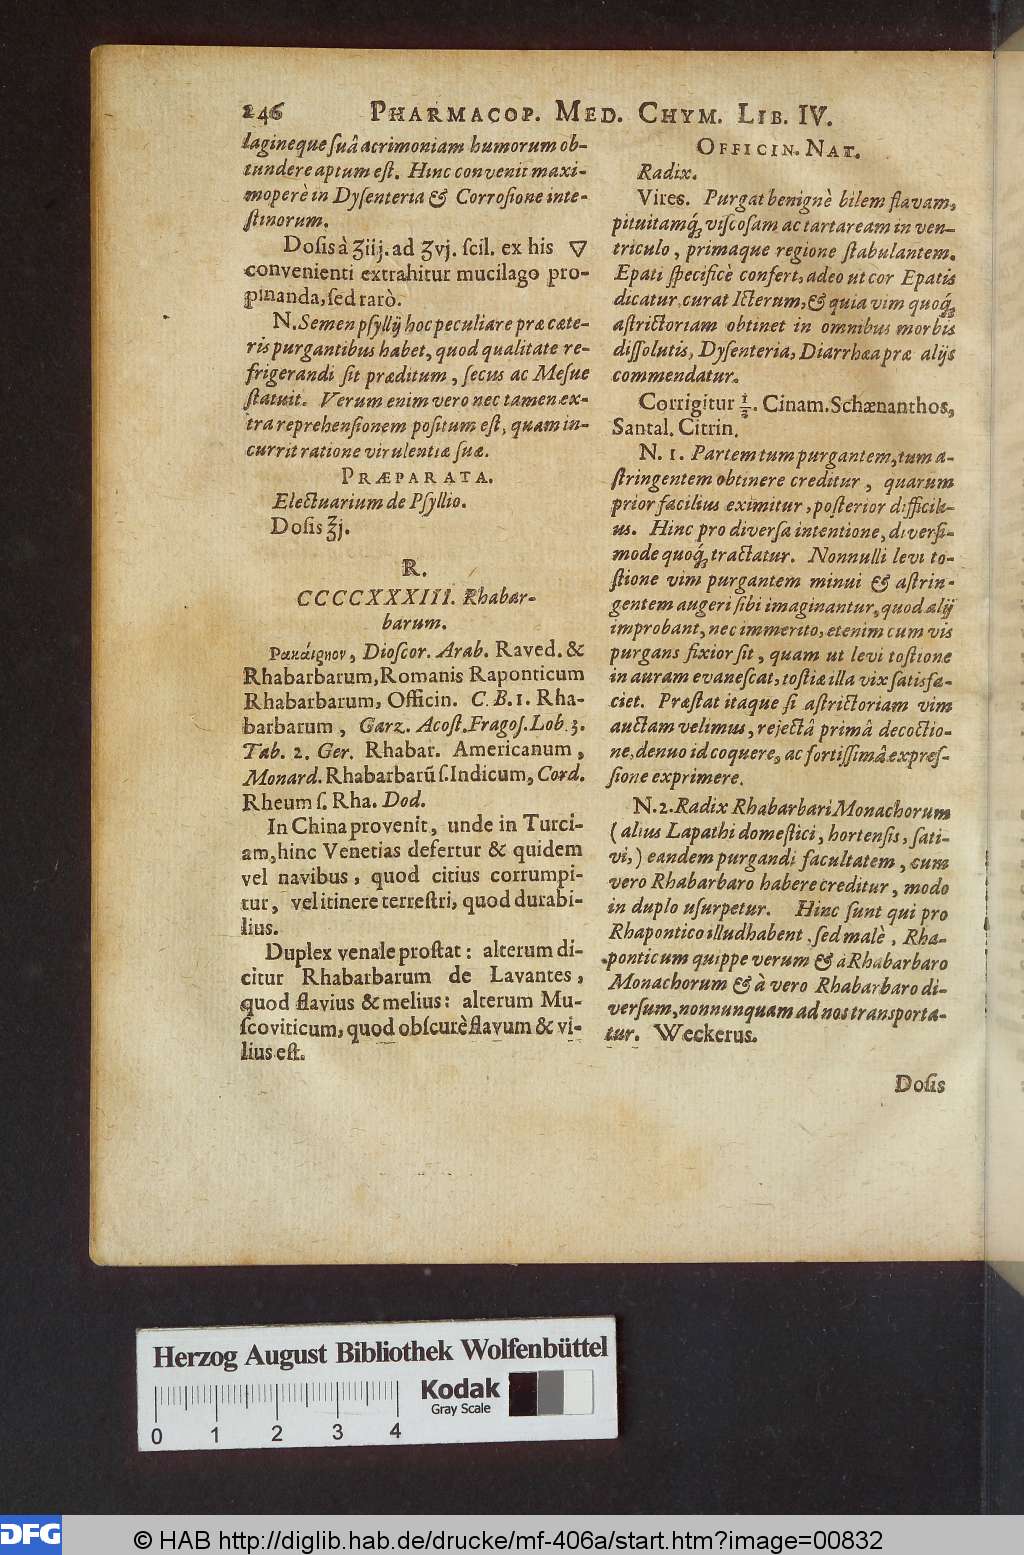 246 PHARMACOP. MED. CHYM. LIB. IV.
lagineque ſuâ acrimoniam humorum ob-
tundere aptum eſt. Hinc convenit maxi-
moperè in Dyſenteria & Corroſione inte-
ſtinorum.
Doſis à ʒiij. ad ʒvj. ſcil. ex his 🜄
convenienti extrahitur mucilago pro-
pinanda, ſed rarò.
N. Semen pſyllij hoc peculiare præ cæte-
ris purgantibus habet, quod qualitate re-
frigerandi ſit præditum, ſecus ac Meſue
ſtatuit. Verum enim vero nec tamen ex-
tra reprehenſionem poſitum eſt, quam in-
currit ratione virulentiæ ſuæ.
PRÆPARATA.
Electuarium de Pſyllio.
Doſis ʒj.
R.
CCCCXXXIII. Rhabar-
barum.
Dioſcor. Arab. Raved. &
Rhabarbarum, Romanis Raponticum
Rhabarbarum, Officin. C. B. 1. Rha-
barbarum, Garz. Acoſt. Fragoſ. Lob. 3.
Tab. 2. Ger. Rhabar. Americanum,
Monard. Rhabarbarũ ſ. Indicum, Cord.
Rheum ſ. Rha. Dod.
In China provenit, unde in Turci-
am, hinc Venetias defertur & quidem
vel navibus, quod citius corrumpi-
tur, vel itinere terreſtri, quod durabi-
lius.
Duplex venale proſtat: alterum di-
citur Rhabarbarum de Lavantes,
quod flavius & melius: alterum Mu-
ſcoviticum, quod obſcurè flavum & vi-
lius eſt.
OFFICIN. NAT.
Radix.
Vires. Purgat benignè bilem flavam,
pituitamq́; viſcoſam ac tartaream in ven-
triculo, primaque regione ſtabulantem.
Epati ſpecificè confert, adeo ut cor Epatis
dicatur, curat Icterum, & quia vim quoq́;
aſtrictoriam obtinet in omnibus morbis
diſſolutis, Dyſenteria, Diarrhæa præ alijs
commendatur.
Corrigitur ½. Cinam. Schænanthos,
Santal. Citrin.
N. 1. Partem tum purgantem, tum a-
ſtringentem obtinere creditur, quarum
prior facilius eximitur, poſterior difficili-
us. Hinc pro diverſa intentione, diverſi-
mode quoq́; tractatur. Nonnulli levi to-
ſtione vim purgantem minui & aſtrin-
gentem augeri ſibi imaginantur, quod alij
improbant, nec immerito, etenim cum vis
purgans fixior ſit, quam ut levi toſtione
in auram evaneſcat, toſtio illa vix ſatisfa-
ciet. Præſtat itaque ſi aſtrictoriam vim
auctam velimus, rejectâ primâ decoctio-
ne, denuo id coquere, ac fortiſſimâ expreſ-
ſione exprimere.
N. 2. Radix Rhabarbari Monachorum
(alius Lapathi domeſtici, hortenſis, ſati-
vi,) eandem purgandi facultatem, cum
vero Rhabarbaro habere creditur, modo
in duplo uſurpetur. Hinc ſunt qui pro
Rhapontico illud habent, ſed malè, Rha-
ponticum quippe verum & à Rhabarbaro
Monachorum & à vero Rhabarbaro di-
verſum, nonnunquam ad nos transporta-
tur. Weckerus.
Doſis
Herzog August Bibliothek Wolfenbüttel
Kodak
Gray Scale
0 1 2 3 4
DFG
© HAB http://diglib.hab.de/drucke/mf-406a/start.htm?image=00832